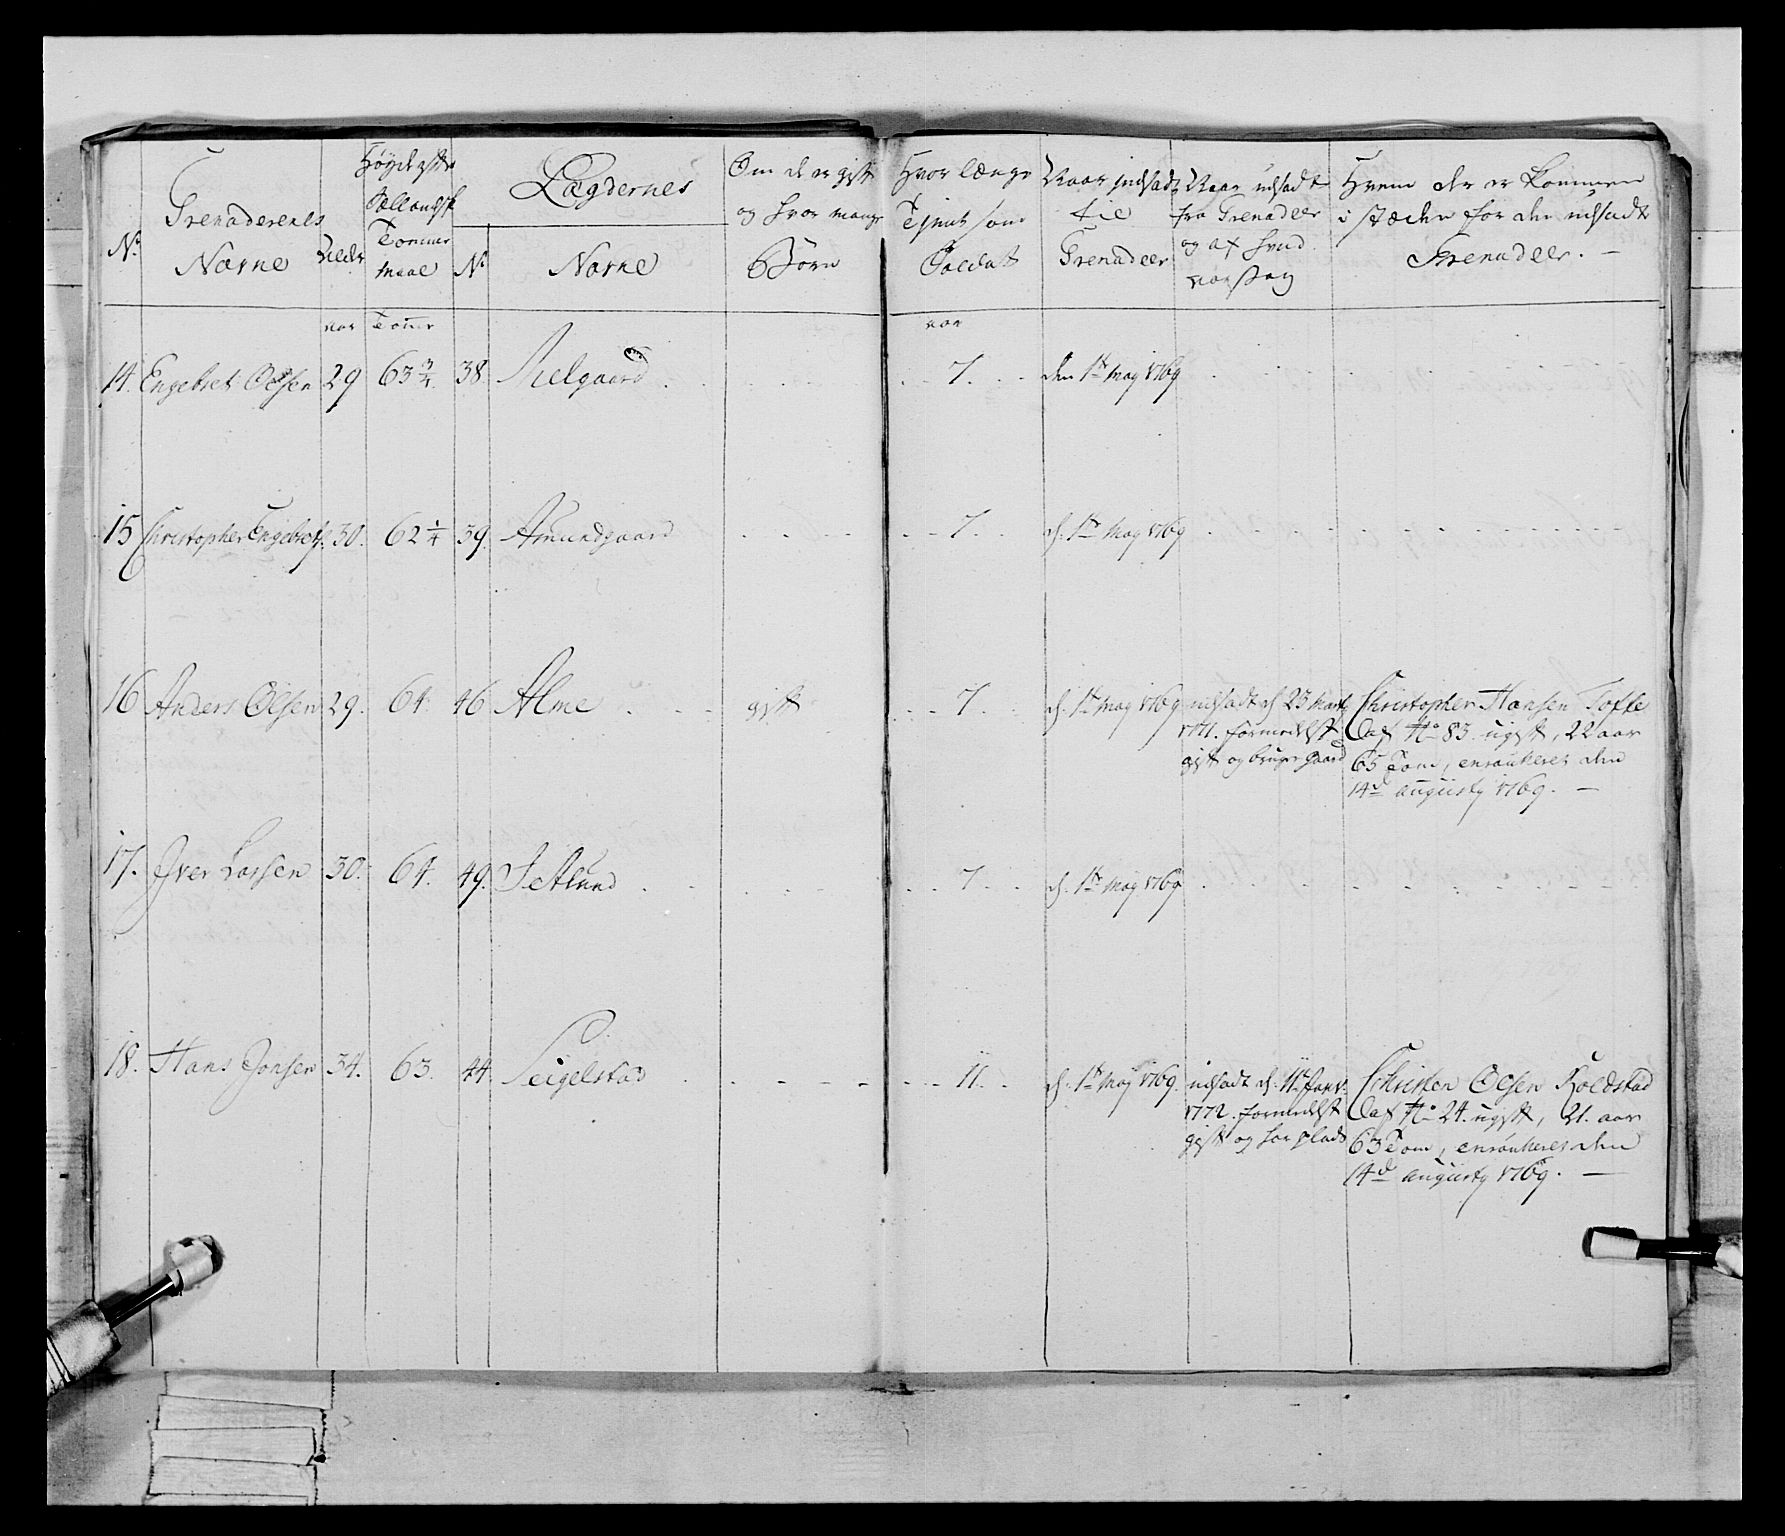 No.
Grenaderenes
Navne
Alder
Høyde efter
Siællandsk
Tommer
maal
Lægdernes
No.
Navne
Om de er gift
og hvor mange
Børn
Hvor længe
Tjent som
Soldat
Naar indsadt
til
Grenadeer
Naar udsadt
fra Grenadeer
og af hvad
aarsag
Hvem der er kommen
i stæden for den udsadte
Grenadeer. —
aar Tomr aar
14. Engebret Olsen 29 63 3/4. 38. Melgaard . . 7. . . den 1te May 1769
15 Christopher Engebrets. 30. 62 1/4 39. Amundgaard . . 7. . d. 1te May 1769
16 Anders Olsen 29. 64. 46. Alme gift 7. . d. 1te May 1769 udsadt d 23 Marty Christopher Hansen Tofte
1771. formedelst af No 83. ugift, 22 aar
gift og bruger gaard 65 Tom, enroulleret den
14d augusty 1769. —
17. Iver Larsen 30. 64. 49. Setlund . . 7. . d. 1te May 1769
18. Hans Jonsen 34. 63. 44. Seigelstad . . 11. . d. 1te May 1769. udsadt d. 11te Janv. Christen Olsen Koldstad
1772. formedelst af No 24. ugift, 21. aar
gift og har plads 63 Tom, enroulleret den
14d augusty 1769. —